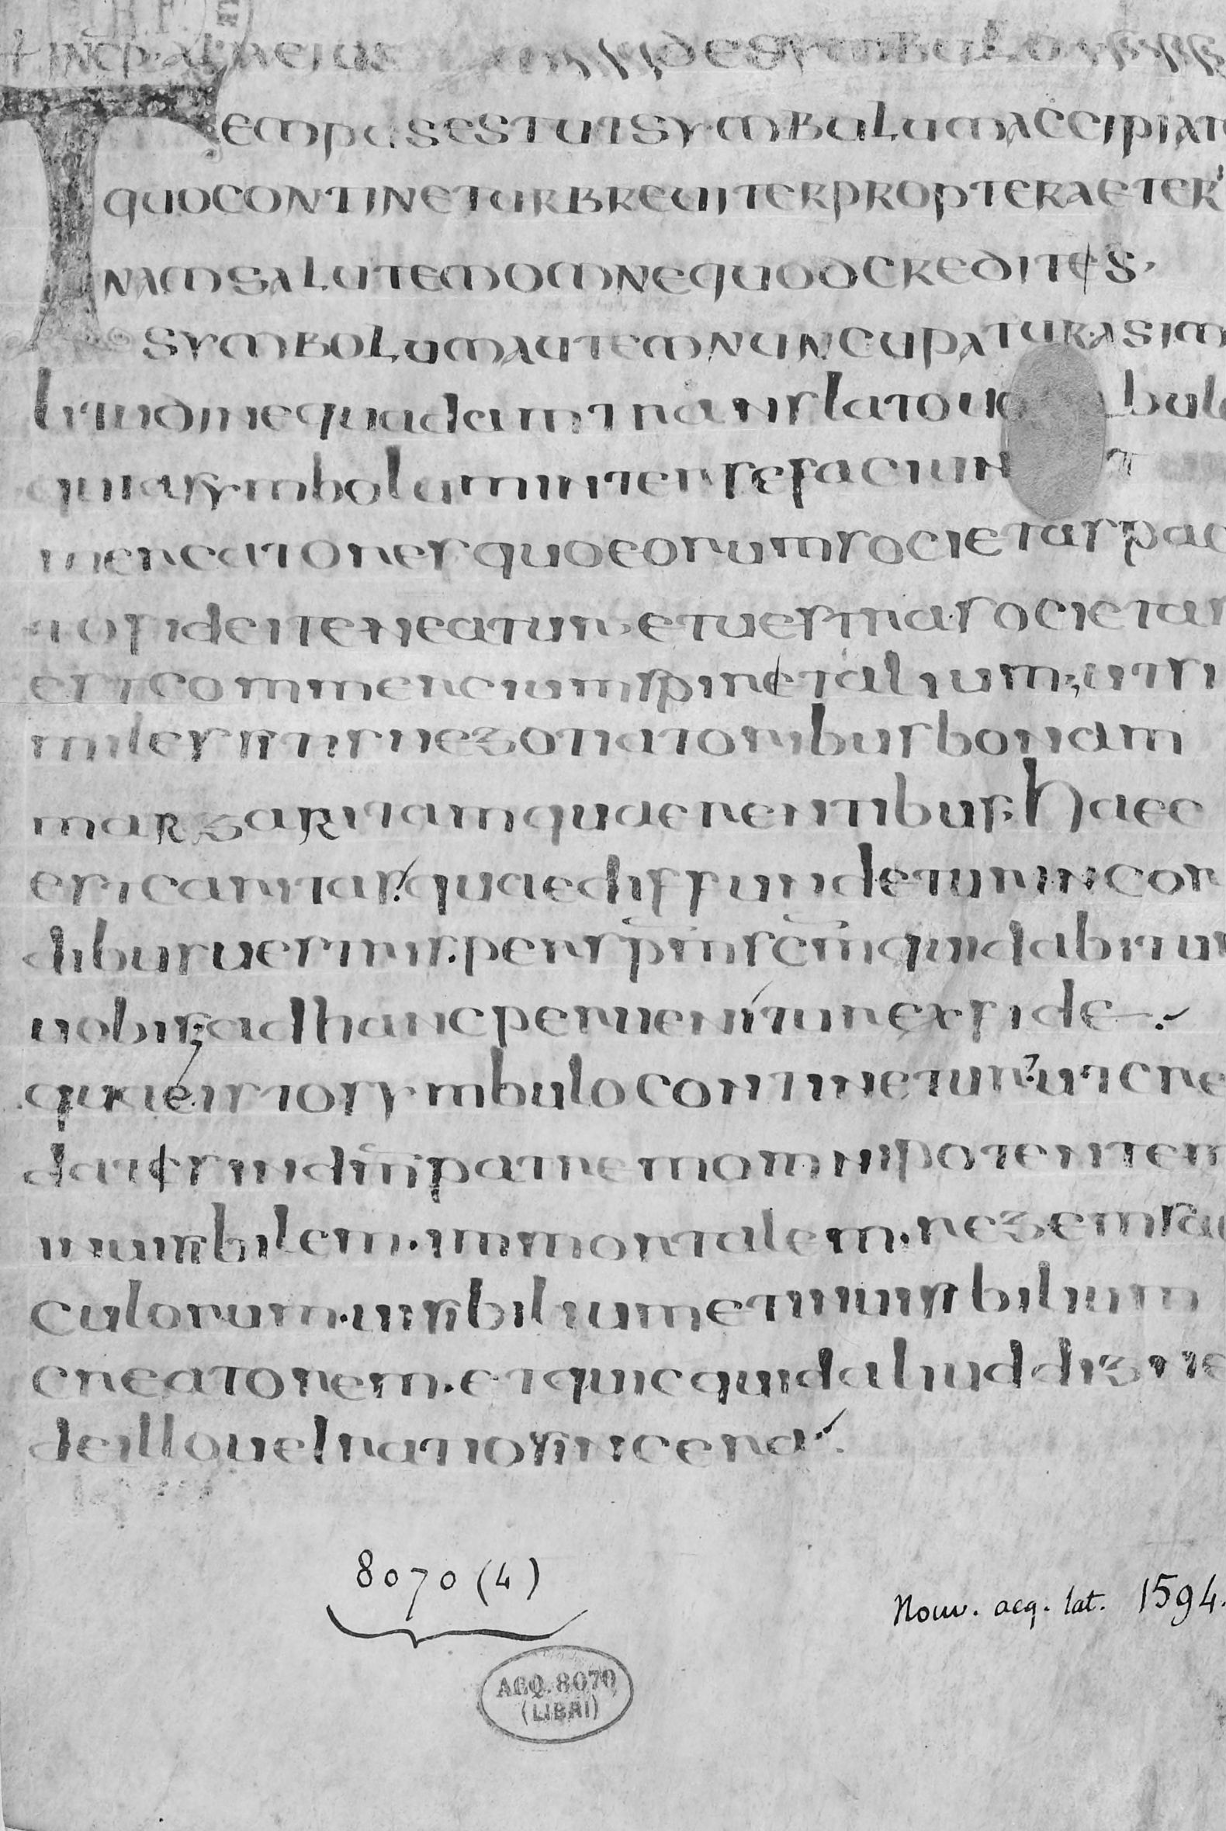 INCP
DE SYMBULO
TEMPUS EST UT SYMBULUM ACCIPIAT
QUO CONTINETUR BREUITER PROPTER AETER
NAM SALUTEM OMNE QUOD CREDITES.
SYMBOLUM AUTEM NUNCUPATUR A SIMI
litudine quadam translato uo bulo
quia symbolum inter se faciun t
mercatores quo eorum societas pac
to fidei teneatur et uestra societas
est commercium spiretalium; ut si
miles sitis negotiatoribus bonam
margaritam quaerentibus. Haec
est caritas! quae diffundetur in cor
dibus uestris. per spm scm qui dabitur
uobis; ad hanc peruenitur ex fide.
quae isto symbulo continetur ut cre
dates in dm patrem omnipotentem
inuisibilem. immortalem. regem sae
culorum. uisibilium et inuisibilium
creatorem. et quicquid aliud digne
de illo uel ratio sincera
8070 (4)
Nouv. acq. lat. 1594.
ACQ. 8070
(LIBRI)